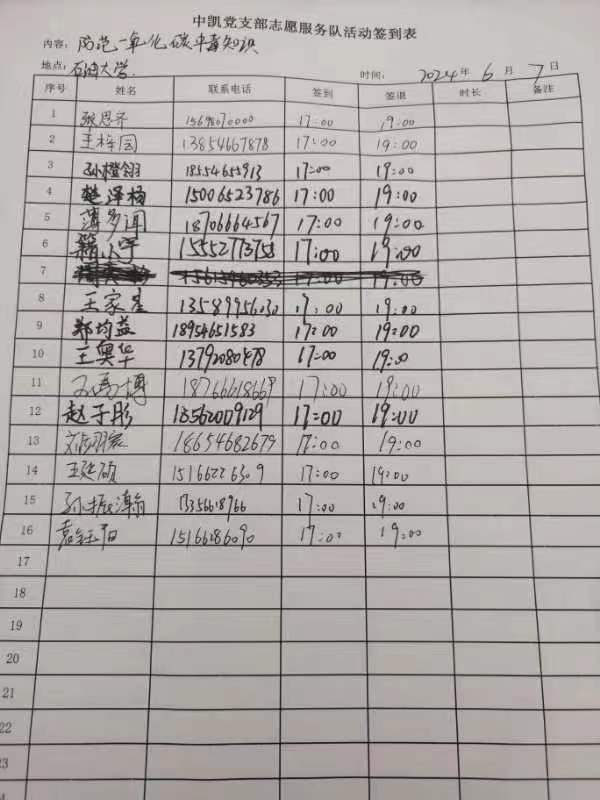 中凯党支部志愿服务队活动签到表
内容：防范一氧化碳中毒知识
地点：石油大学 时间：2024年6月7日
序号 姓名 联系电话 签到 签退 时长 备注
1 张思齐 17:00 19:00
2 王梓园 13854667878 17:00 19:00
3 孙橙翎 18554655913 17:00 19:00
4 楚泽杨 15006523786 17:00 19:00
5 蒲多闻 18706664567 17:00 19:00
6 籍小宇 15552773758 17:00 19:00
7 17:00 19:00
8 王家星 13589956030 17:00 19:00
9 郑均益 18954651583 17:00 19:00
10 王奥华 13792080478 17:00 19:00
11 博 18766618669 17:00 19:00
12 赵子彤 13562009129 17:00 19:00
13 18654682679 17:00 19:00
14 王延硕 15166226309 17:00 19:00
15 孙振瀚 17:00 19:00
16 袁钰阳 15166186090 17:00 19:00
17
18
19
20
21
22
23